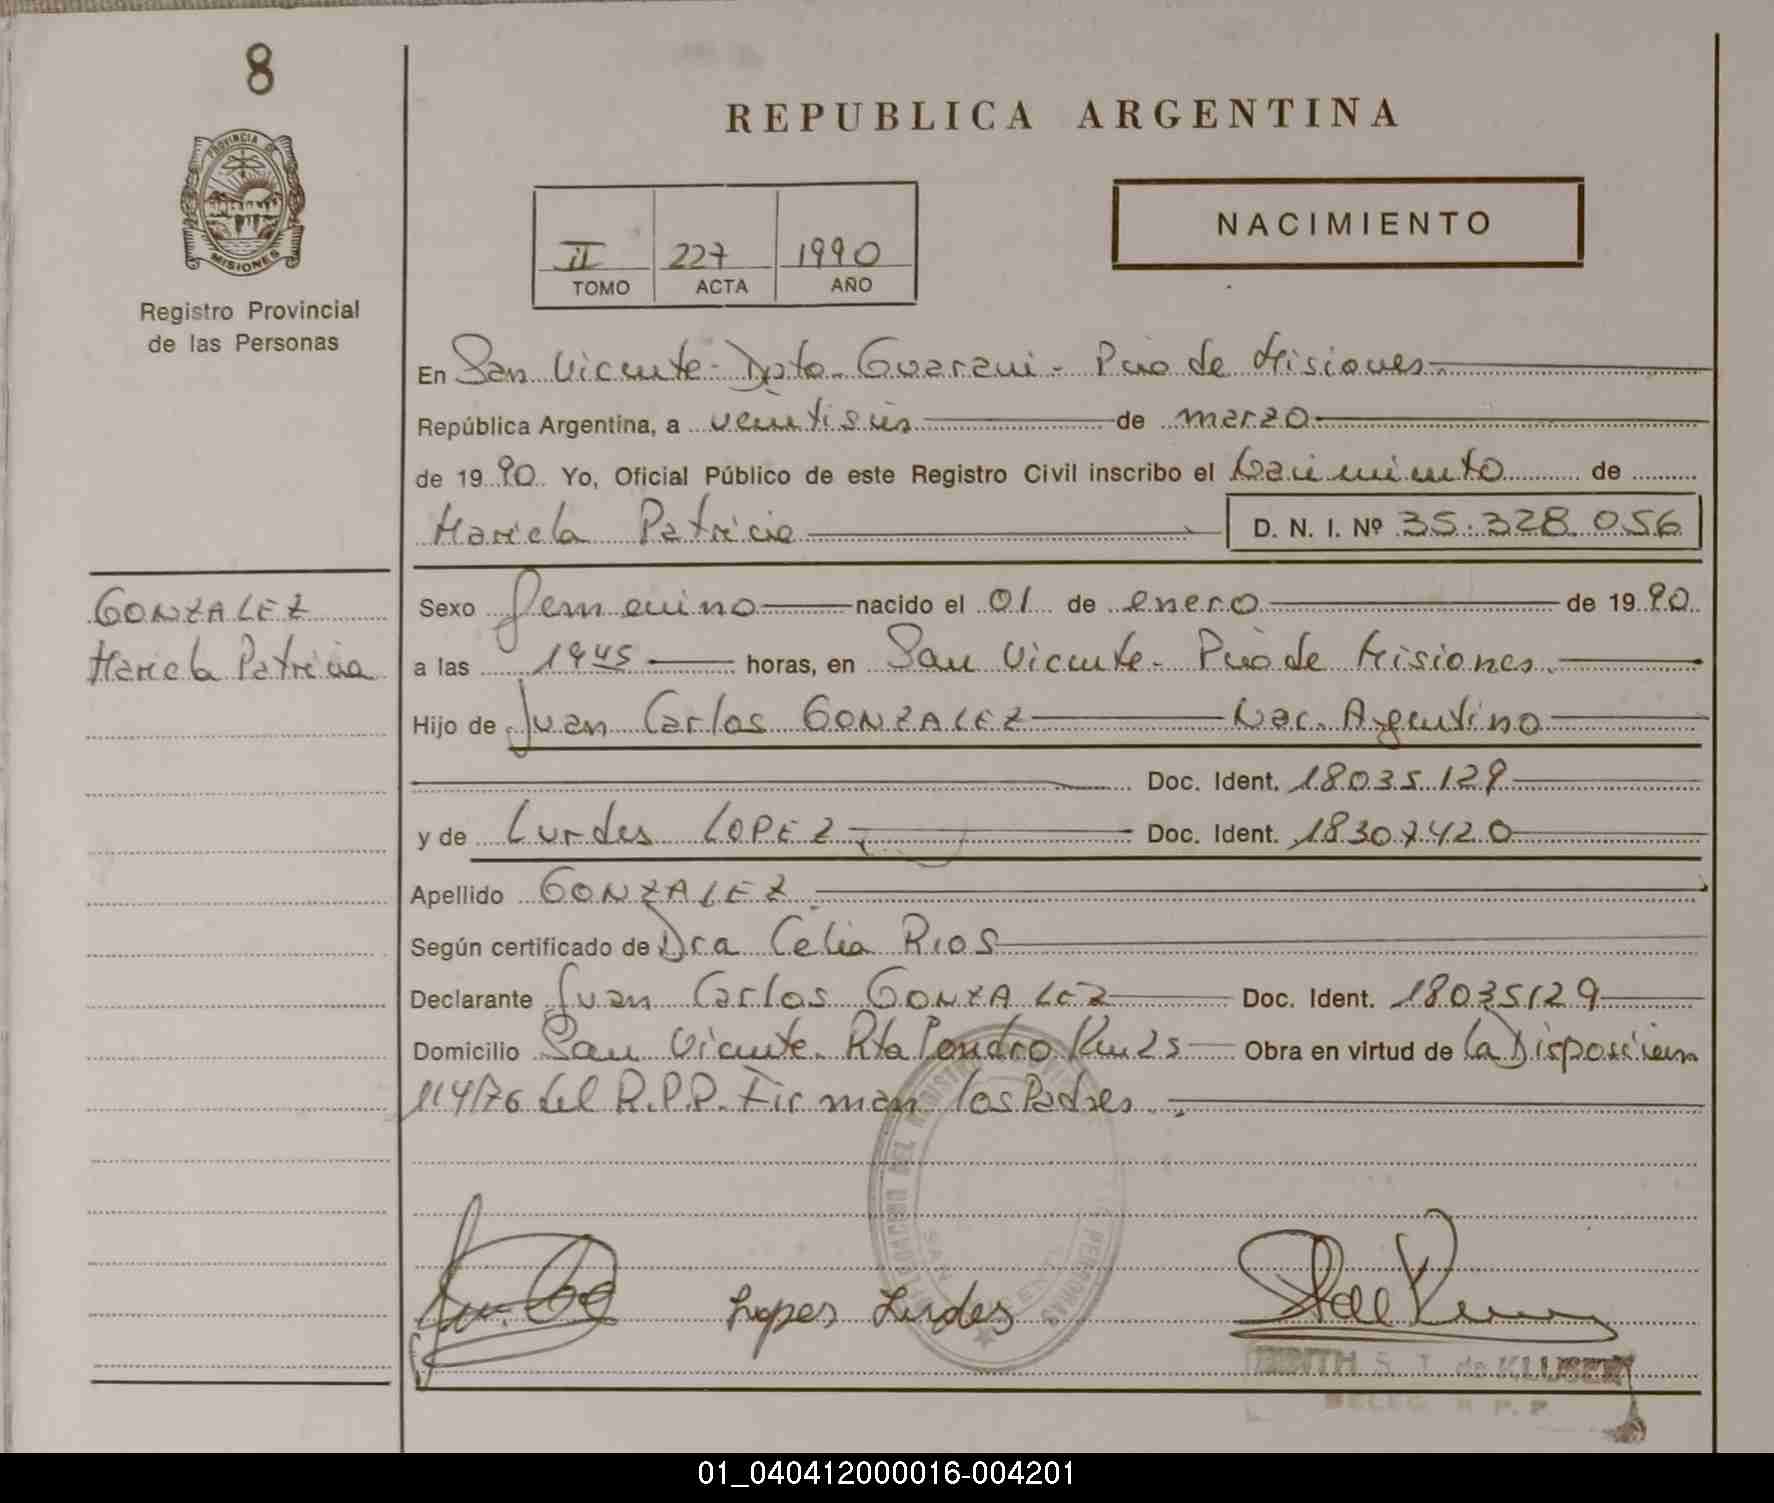 8
PROVINCIA DE
MISIONES
Registro Provincial
de las Personas
REPUBLICA ARGENTINA
NACIMIENTO
II 227 1990
TOMO ACTA AÑO
En San Vicente - Dpto. Guarani - Pcia de Misiones
República Argentina, a veintiseis de marzo
de 1990 Yo, Oficial Público de este Registro Civil inscribo el Nacimiento de
Mariela Patricia D. N. I. Nº 35.328.056
GONZALEZ
Mariela Patricia
Sexo femenino nacido el 01 de enero de 1990
a las 1945 horas, en San Vicente - Pcia de Misiones
Hijo de Juan Carlos GONZALEZ Nac. Argentino
Doc. Ident. 18035129
y de Lurdes LOPEZ Doc. Ident. 18307420
Apellido GONZALEZ
Según certificado de Dra Celia RIOS
Declarante Juan Carlos GONZALEZ Doc. Ident. 18035129
Domicilio San Vicente Obra en virtud de la Disposicion
114/76 del R.P.P. Firman los Padres.
Lopes Lurdes
S. T. de KLUSENER
DELEG. R. P. P.
01_040412000016-004201